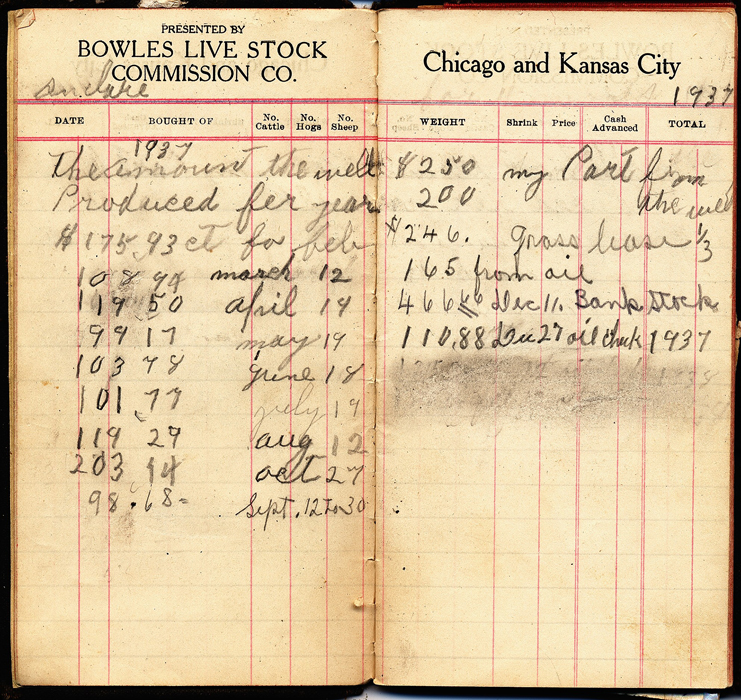 PRESENTED BY
BOWLES LIVE STOCK
COMMISSION CO.
Sinclare
DATE BOUGHT OF No. Cattle No. Hogs No. Sheep
1937
The amount the well
Produced fer year
$175,93 ct for feb
108 94 march 12
119 50 april 14
99 17 may 19
103 78 june 18
101 77 july 19
119 29 aug 12
203 14 oct 27
98.68 Sept. 12 to 30
Chicago and Kansas City
1937
WEIGHT Shrink Price Cash Advanced TOTAL
$250 my Part from
200 the well
$246. gross lease 1/3
165 from oil
466 Dec 11. Bank Stock
110.88 Dec 27 oil check 1937